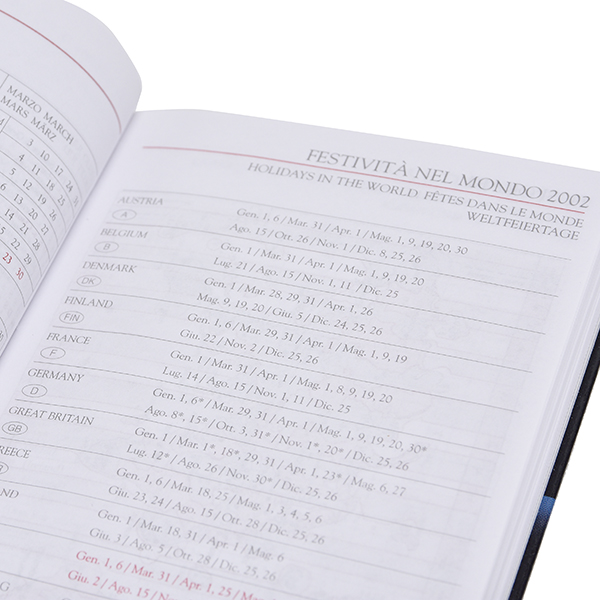 MARZO MARCH
MARS MÄRZ
3 10 17 24 31
4 11 18 25
5 12 19 26
6 13 20 27
7 14 21 28
8 15 22 29
9 16 23 30
FESTIVITÀ NEL MONDO 2002
HOLIDAYS IN THE WORLD FÊTES DANS LE MONDE
WELTFEIERTAGE
AUSTRIA
A
Gen. 1, 6 / Mar. 31 / Apr. 1 / Mag. 1, 9, 19, 20, 30
Ago. 15 / Ott. 26 / Nov. 1 / Dic. 8, 25, 26
BELGIUM
B
Gen. 1 / Mar. 31 / Apr. 1 / Mag. 1, 9, 19, 20
Lug. 21 / Ago. 15 / Nov. 1, 11 / Dic. 25
DENMARK
DK
Gen. 1 / Mar. 28, 29, 31 / Apr. 1, 26
Mag. 9, 19, 20 / Giu. 5 / Dic. 24, 25, 26
FINLAND
FIN
Gen. 1, 6 / Mar. 29, 31 / Apr. 1 / Mag. 1, 9, 19
Giu. 22 / Nov. 2 / Dic. 25, 26
FRANCE
F
Gen. 1 / Mar. 31 / Apr. 1 / Mag. 1, 8, 9, 19, 20
Lug. 14 / Ago. 15 / Nov. 1, 11 / Dic. 25
GERMANY
D
Gen. 1, 6* / Mar. 29, 31 / Apr. 1 / Mag. 1, 9, 19, 20, 30*
Ago. 8*, 15* / Ott. 3, 31* / Nov. 1*, 20* / Dic. 25, 26
GREAT BRITAIN
GB
Gen. 1 / Mar. 1*, 18*, 29, 31 / Apr. 1, 23* / Mag. 6, 27
Lug. 12* / Ago. 26 / Nov. 30* / Dic. 25, 26
REECE
Gen. 1, 6 / Mar. 18, 25 / Mag. 1, 3, 4, 5, 6
Giu. 23, 24 / Ago. 15 / Ott. 28 / Dic. 25, 26
AND
Gen. 1 / Mar. 18, 31 / Apr. 1 / Mag. 6
Giu. 3 / Ago. 5 / Ott. 28 / Dic. 25, 26
Gen. 1, 6 / Mar. 31 / Apr. 1, 25 / Mag.
Giu. 2 / Ago. 15 / Nov.
G